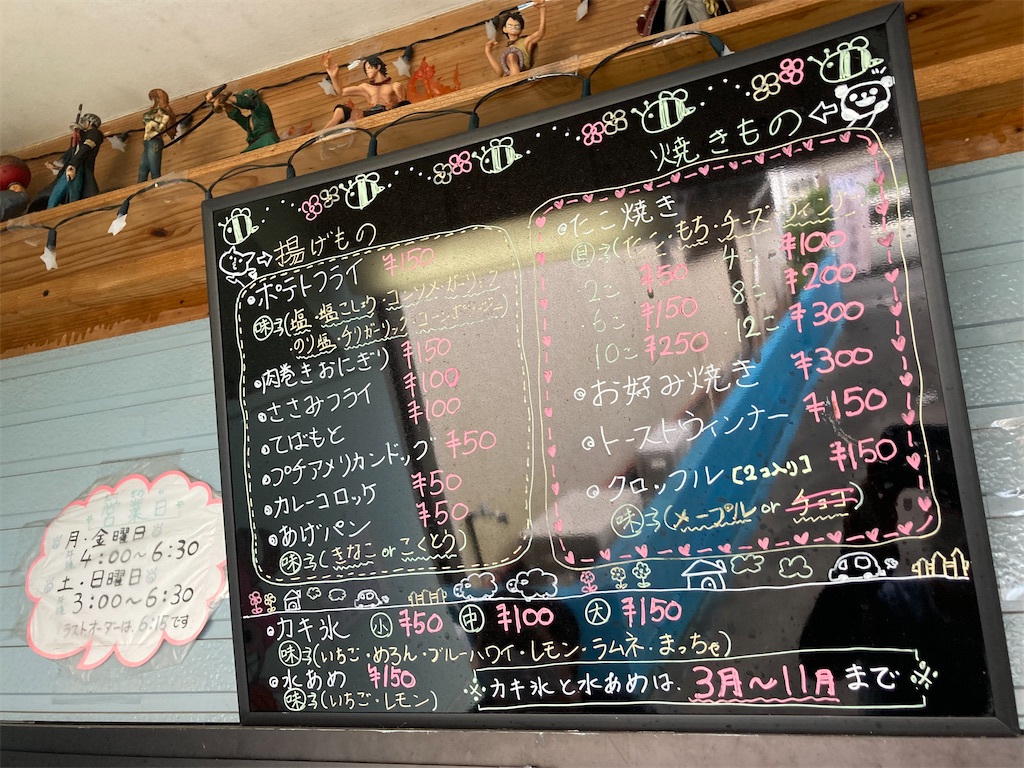 揚げもの
ポテトフライ ¥150
味(塩・塩こしょう・コンソメ・ガーリック
のり塩・チリガーリック・コーンポタージュ)
肉巻きおにぎり ¥150
ささみフライ ¥100
てばもと ¥100
プチアメリカンドッグ ¥50
カレーコロッケ ¥50
あげパン ¥50
味(きなこ or こくとう)
焼きもの
たこ焼き
具(たこ・もち・チーズ・ウィンナー
2こ ¥50 4こ ¥100
6こ ¥150 8こ ¥200
10こ ¥250 12こ ¥300
お好み焼き ¥300
トーストウィンナー ¥150
クロッフル [2コ入り] ¥150
味(メープル or チョコ)
カキ氷 小 ¥50 中 ¥100 大 ¥150
味(いちご・めろん・ブルーハワイ・レモン・ラムネ・まっちゃ)
水あめ ¥150
味(いちご・レモン)
カキ氷と水あめは、3月～11月まで
営業日
月・金曜日
4:00～6:30
土・日曜日
3:00～6:30
ラストオーダーは、6:15です